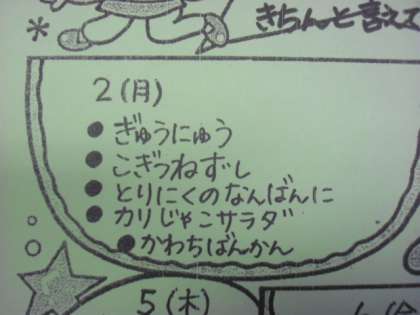 きちんと言えて
2(月)
● ぎゅうにゅう
● こぎつねずし
● とりにくのなんばんに
● カリじゃこサラダ
● かわちばんかん
5(木)